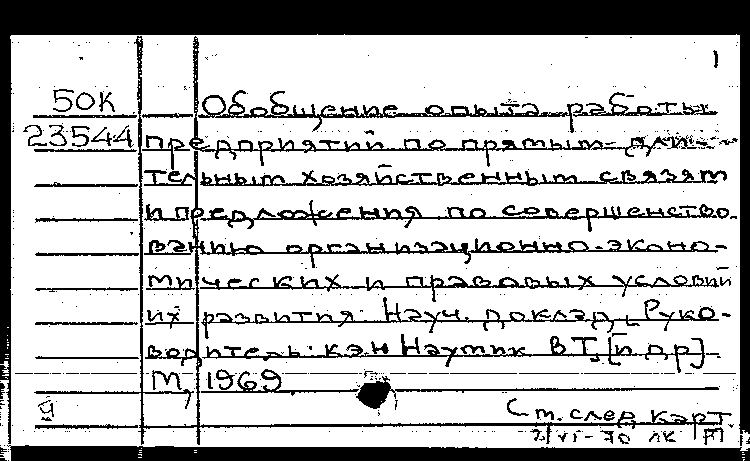 1
50К Обобщение опыта работы
23544 предприятий по прямым дли-
тельным хозяйственным связям
и предложения по совершенство-
ванию организационно-эконо-
мических и правовых условий
их развития. Науч. доклад, Руко-
водитель: к.э.н Наумик В Т, [и др]
М, 1969
См. след карт.